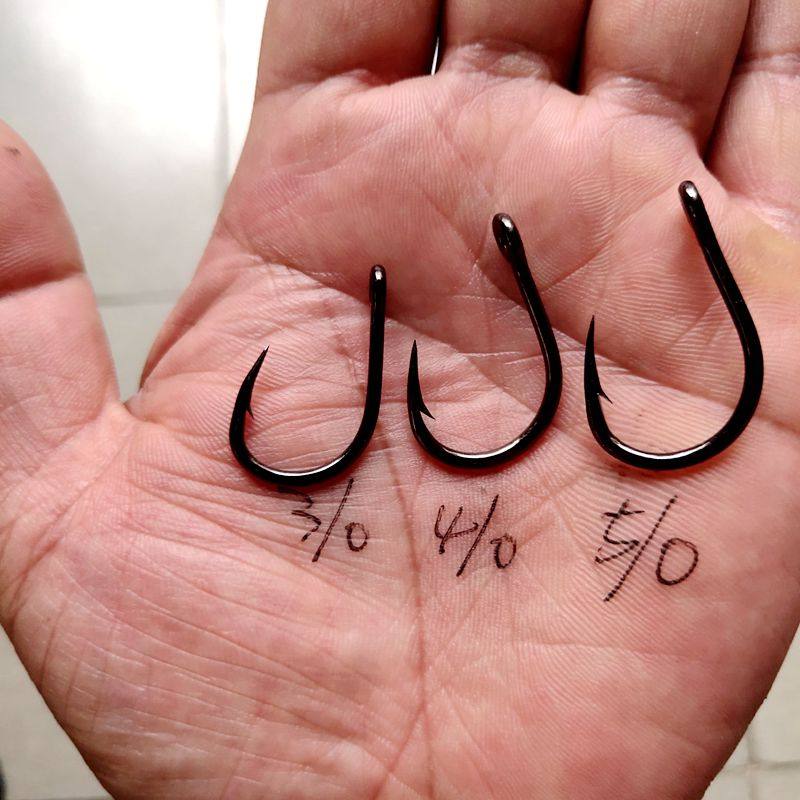 3/0 4/0 5/0